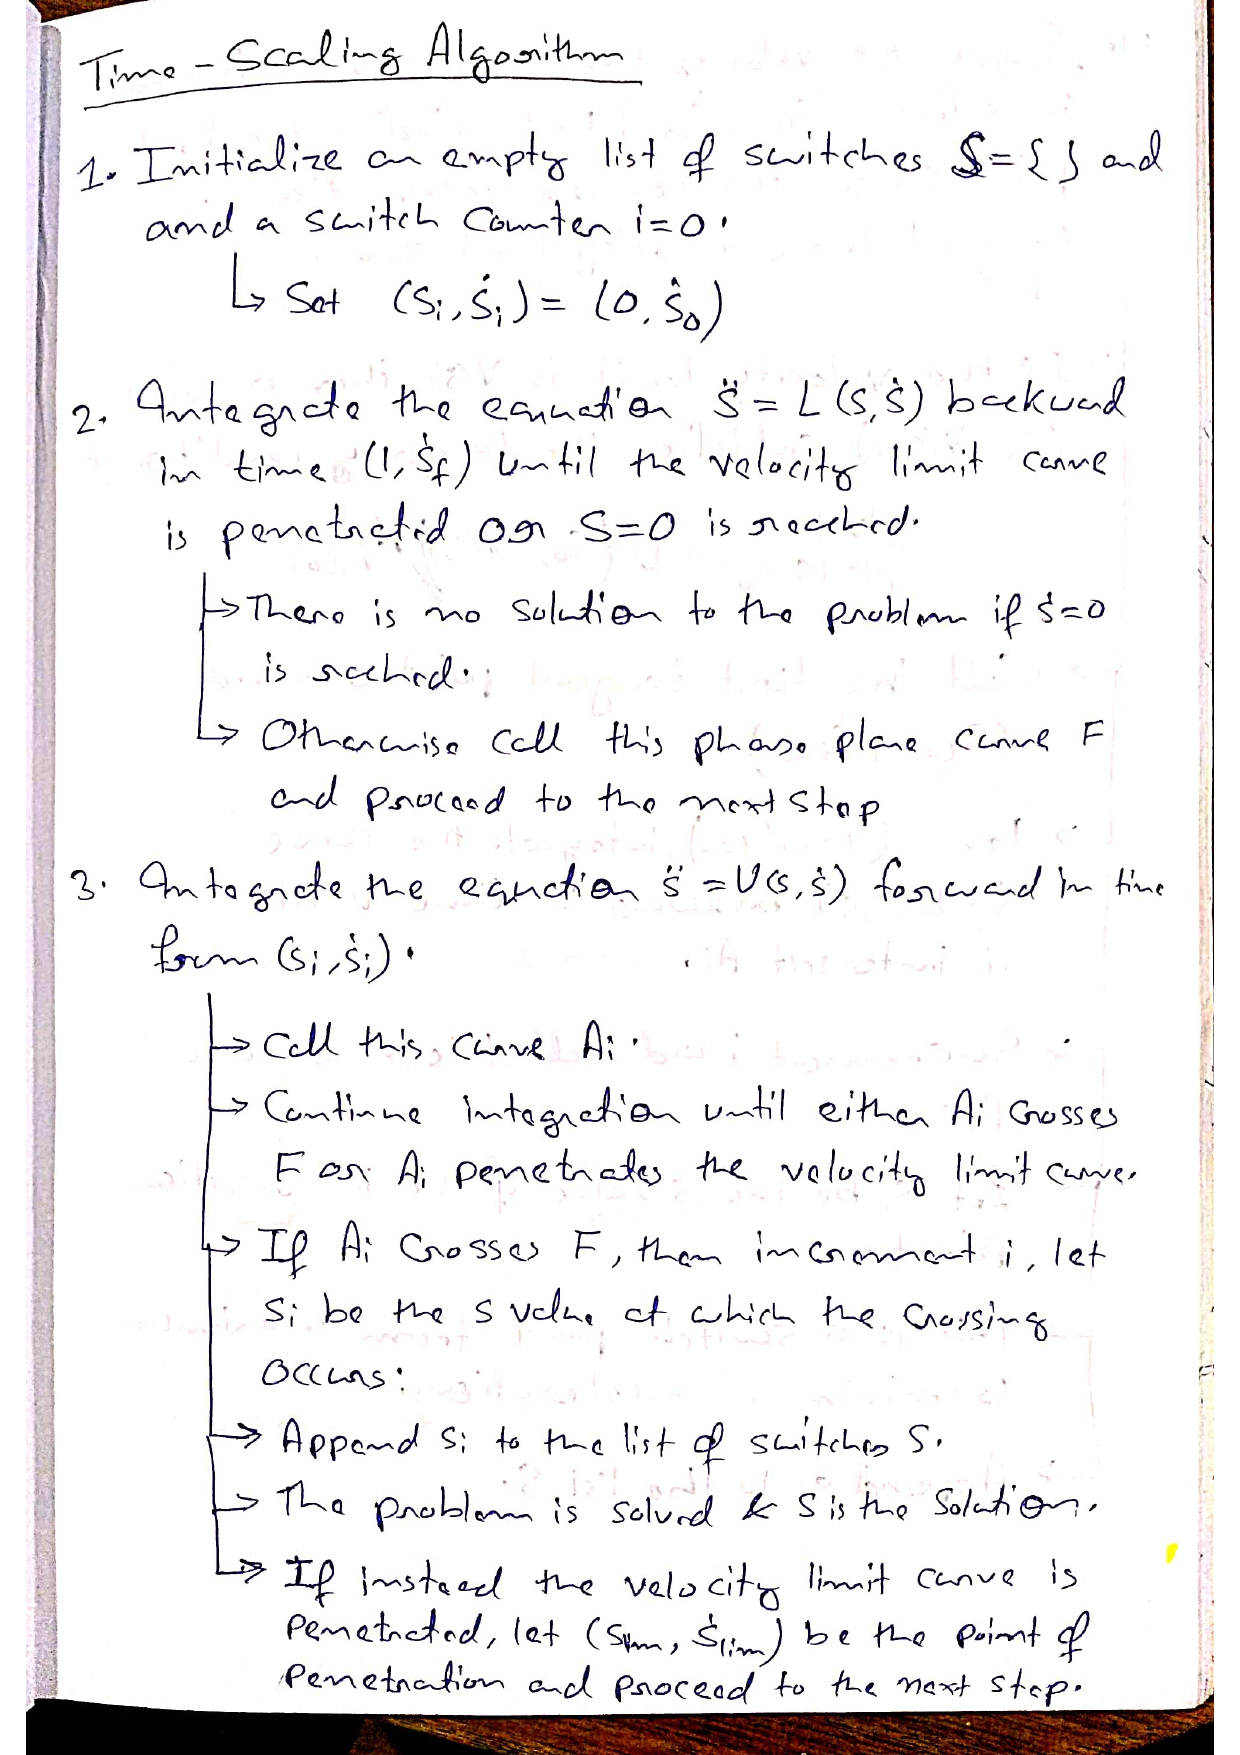 Time-Scaling Algorithm
1. Initialize an empty list of switches S={} and
and a switch counter i=0.
↳ Set (Si, Ṡi) = (0, Ṡ0)
2. Integrate the equation S̈ = L(S,Ṡ) backward
in time (1, Ṡf) until the velocity limit curve
is penetrated or S=0 is reached.
→ There is no solution to the problem if Ṡ=0
is reached.
↳ Otherwise call this phase plane curve F
and proceed to the next step
3. Integrate the equation S̈ = U(S,Ṡ) forward in time
form (Si, Ṡi).
→ Call this curve Ai.
→ Continue integration until either Ai crosses
F or Ai penetrates the velocity limit curve.
→ If Ai crosses F, then increment i, let
Si be the S value at which the crossing
occurs:
→ Append Si to the list of switches S.
→ The problem is solved & S is the Solution.
↳ If instead the velocity limit curve is
penetrated, let (Slim, Ṡlim) be the point of
penetration and proceed to the next step.